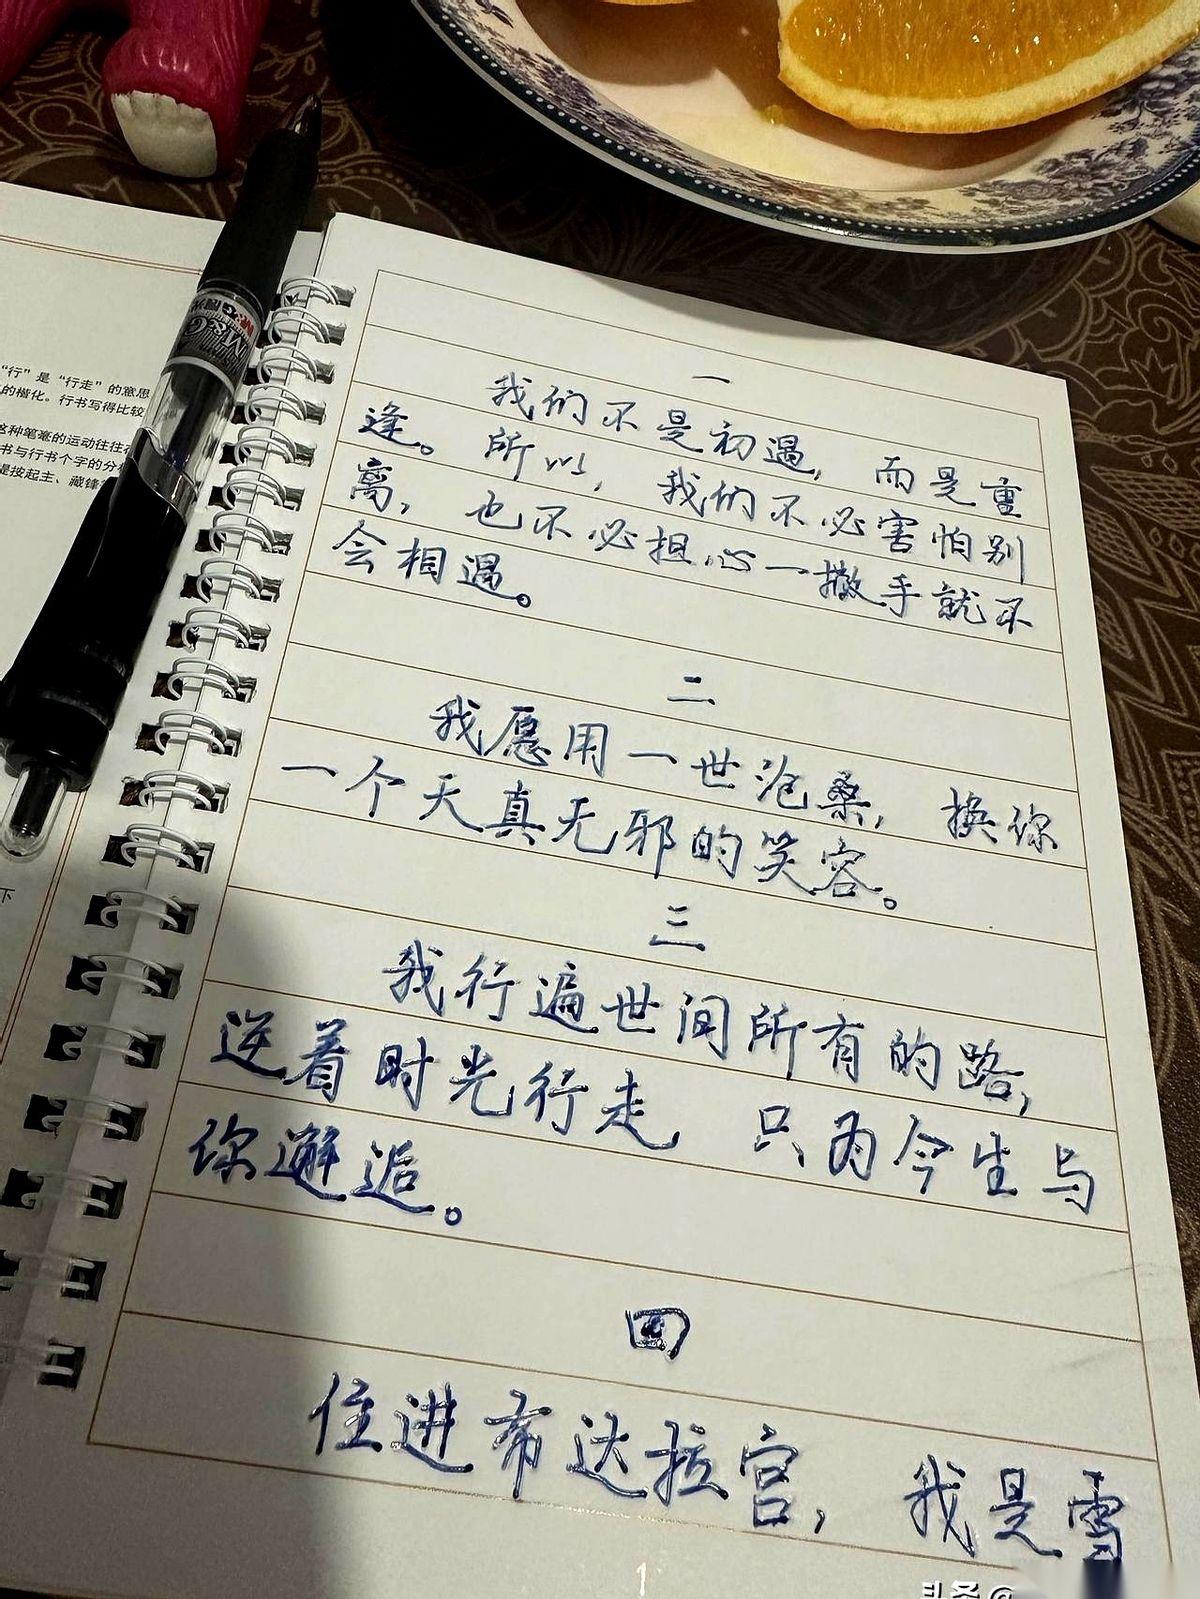 “行”是“行走”的意思
的楷化。行书写得比较
这种笔毫的运动往往在
书与行书个字的分
是按起主、藏锋
下
M&G
一
我们不是初遇，而是重
逢。所以，我们不必害怕别
离，也不必担心一撒手就不
会相遇。
二
我愿用一世沧桑，换你
一个天真无邪的笑容。
三
我行遍世间所有的路，
逆着时光行走 只为今生与
你邂逅。
四
住进布达拉宫，我是雪
1
头条@